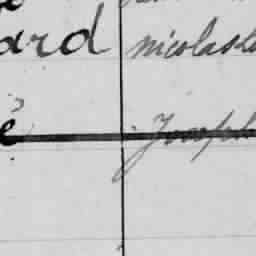 ard nicolas
é Joseph